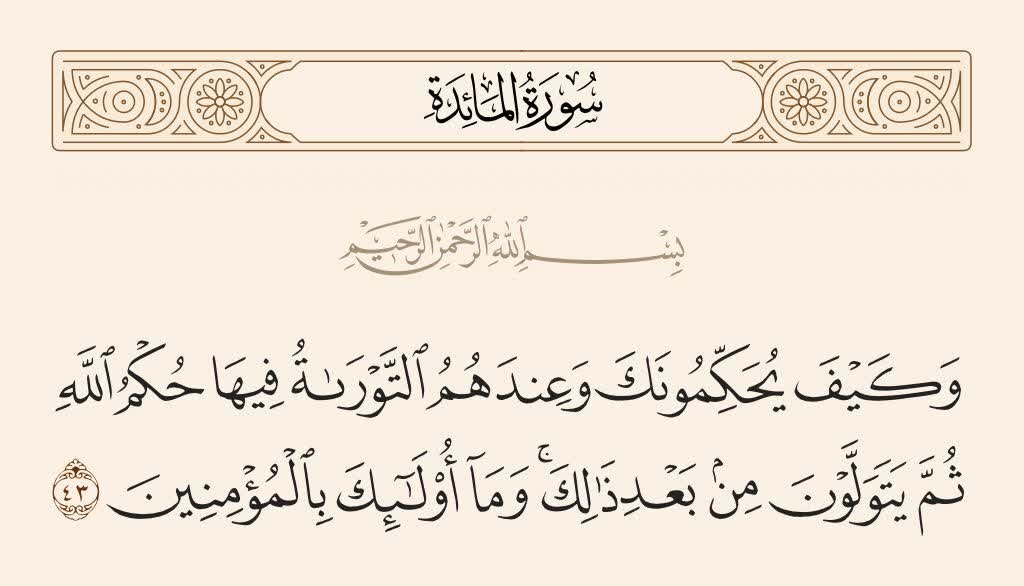 سُورَةُ المَائِدَةِ
بِسْمِ ٱللَّهِ ٱلرَّحْمَٰنِ ٱلرَّحِيمِ
وَكَيْفَ يُحَكِّمُونَكَ وَعِندَهُمُ ٱلتَّوْرَىٰةُ فِيهَا حُكْمُ ٱللَّهِ
ثُمَّ يَتَوَلَّوْنَ مِنۢ بَعْدِ ذَٰلِكَ ۚ وَمَآ أُو۟لَـٰٓئِكَ بِٱلْمُؤْمِنِينَ ٤٣